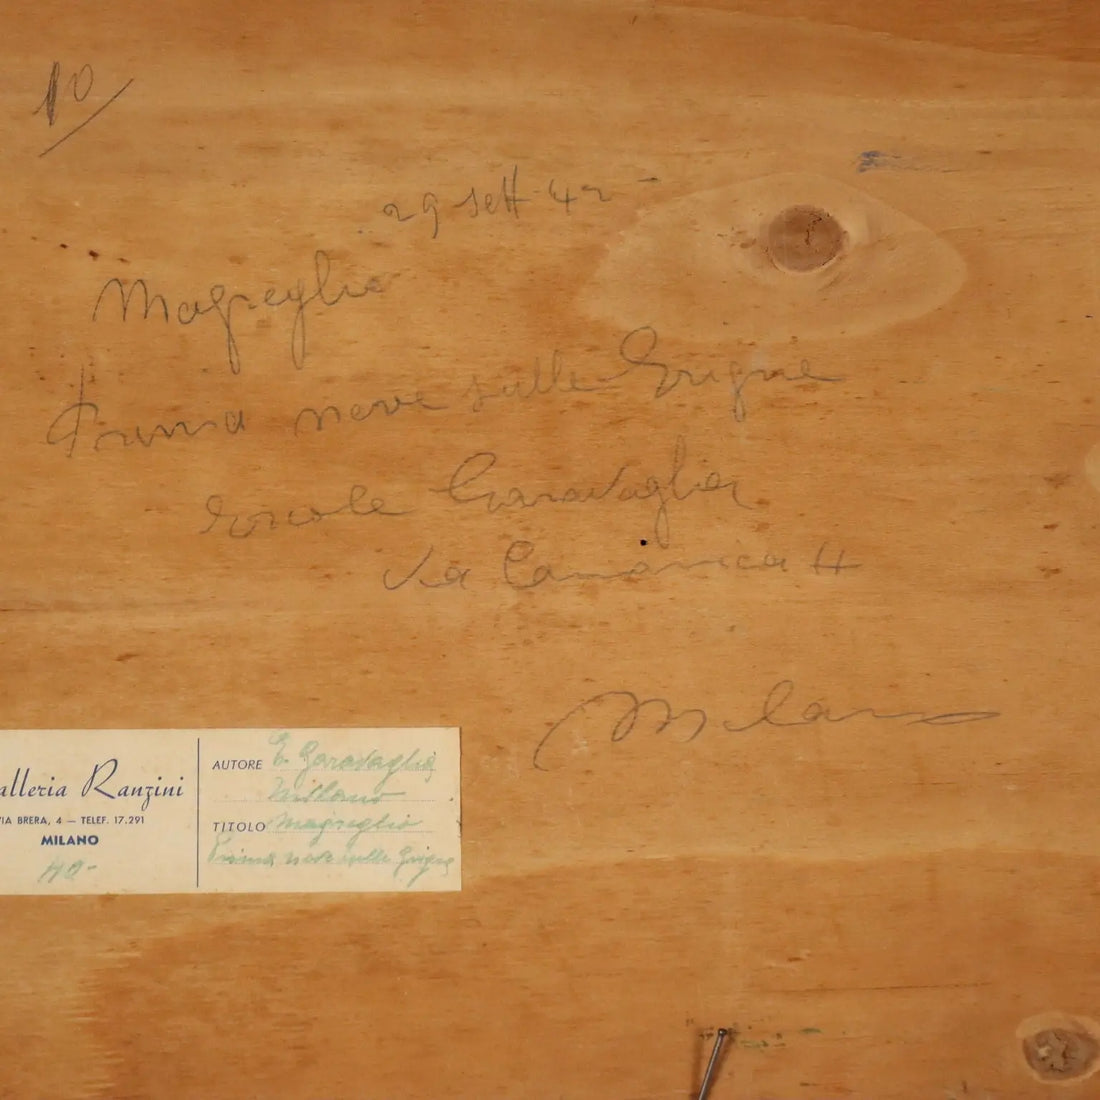 10
29 sett 42-
Magreglio
Prima neve sulle Grigne
Ercole Garavaglia
Via Canonica
Milano
alleria Ranzini
VIA BRERA, 4 — TELEF. 17.291
MILANO
AUTORE E. Garavaglia
Milano
TITOLO Magreglio
Prima neve sulle Grigne